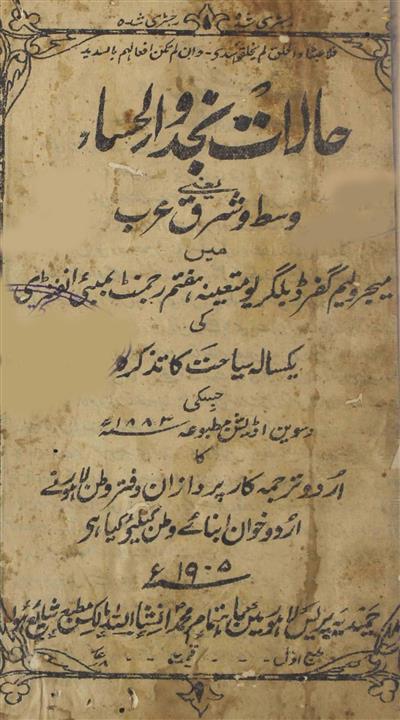 رجسٹری شدہ رجسٹری شدہ
حالات نجد والحساء
یعنی
وسط و شرق عرب
میں
میجر ولیم گفرڈ پلگریو متعینہ ہفتم رجمنٹ بمبئی انفنٹری
کی
یکسالہ سیاحت کا تذکرہ
جسکی
دسوین اڈیشن مطبوعہ ۱۸۸۳ء
کا
اردو ترجمہ کارپردازان دفتر وطن لاہور نے
اردو خوان ابنائے وطن کیلئے کیا ہو
۱۹۰۵ء
حمیدیہ پریس لاہور میں باہتمام محمد انشاء اللہ مالک مطبع شایع ہوا
طبع اول قیمت